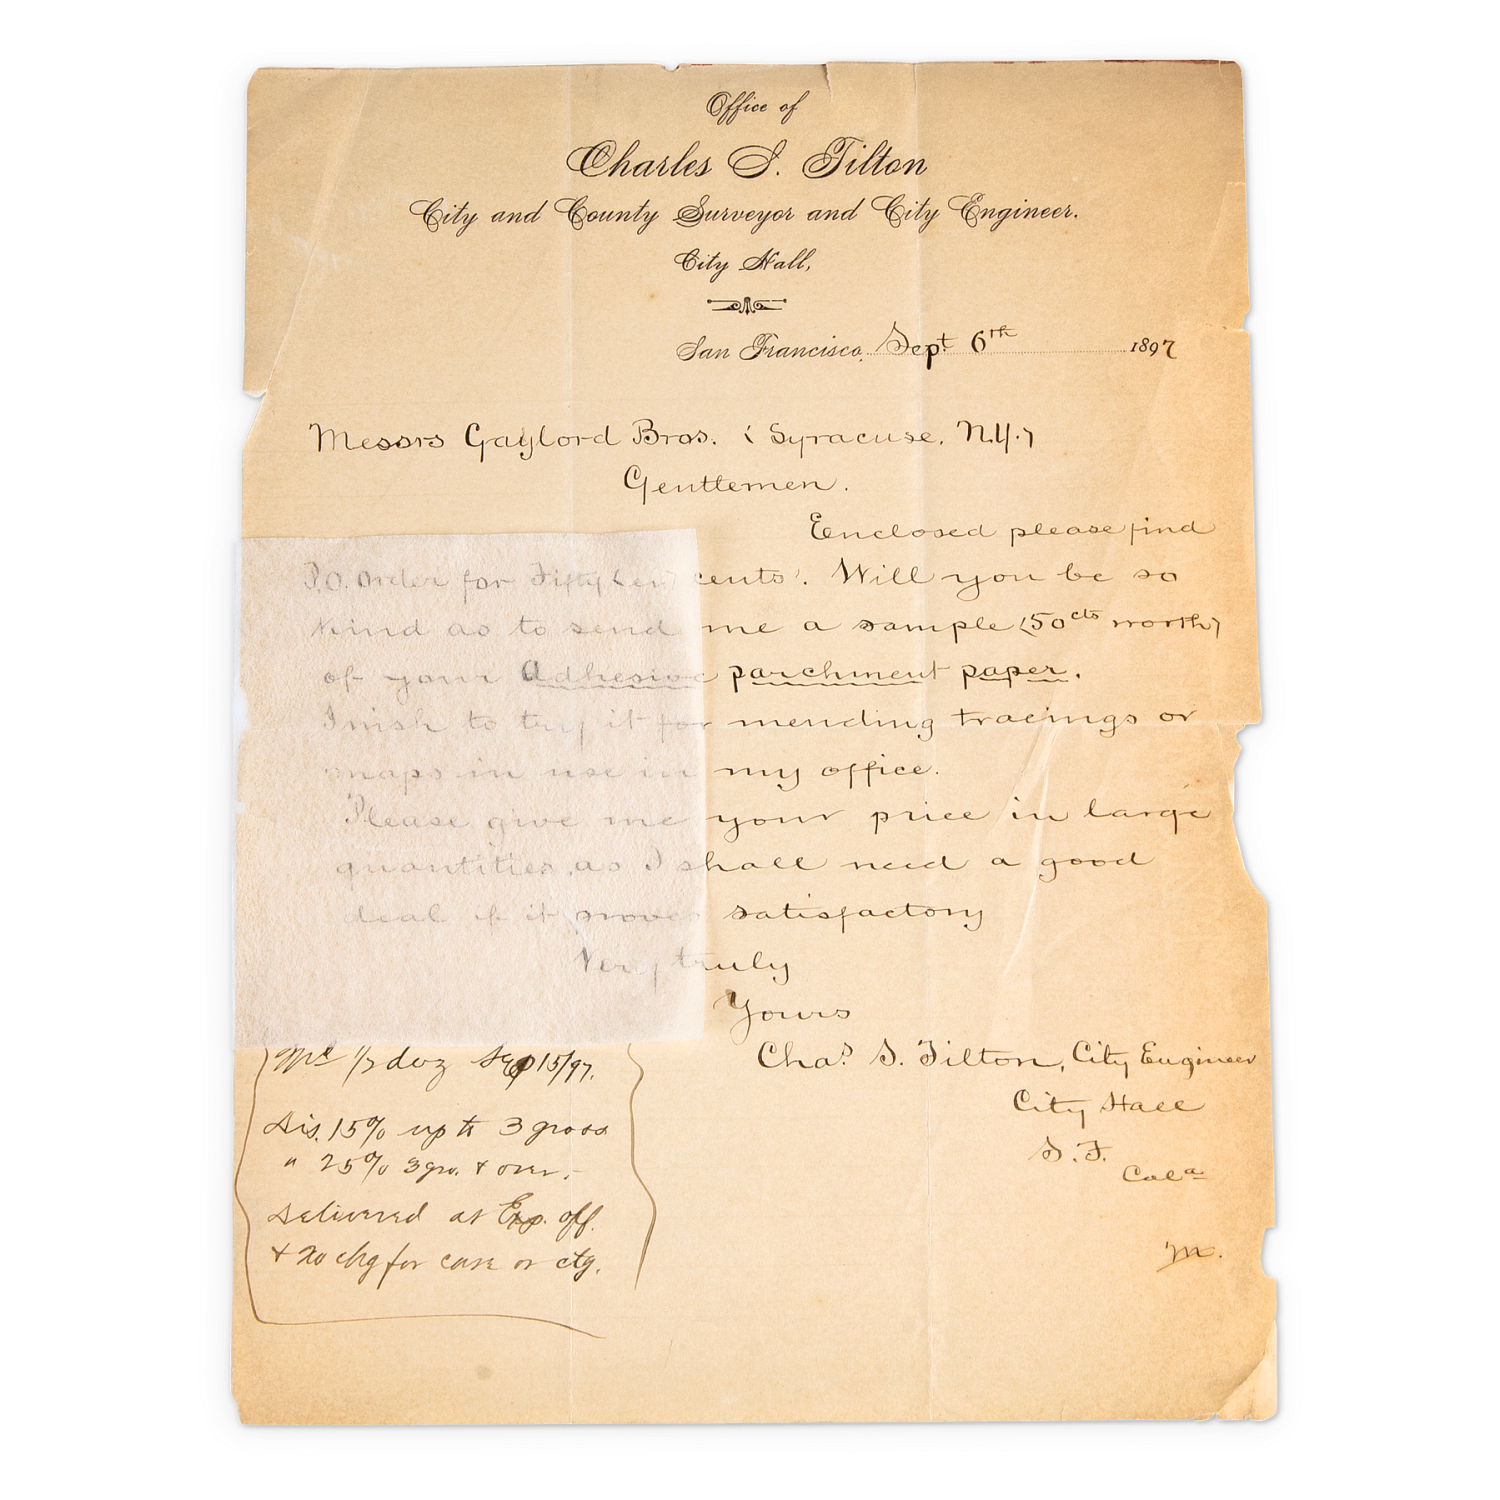 Office of
Charles S. Tilton
City and County Surveyor and City Engineer.
City Hall,
San Francisco, Sept 6th 1897
Messrs Gaylord Bros. ( Syracuse. N.Y.)
Gentlemen.
Enclosed please find
P.O. Order for Fifty cents. Will you be so
kind as to send me a sample (50cts worth)
of your Adhesive parchment paper.
I wish to try it for mending tracings or
maps in use in my office.
Please give me your price in large
quantities, as I shall need a good
deal if it proves satisfactory
Very truly
Yours
Chas. S. Tilton, City Engineer
City Hall
S. F.
Cala
M.
1/2 doz Sep 15/97.
Dis. 15% up to 3 gross
" 25% 3 gro. & over.
Delivered at Exp. off.
& no chg for case or ctg.